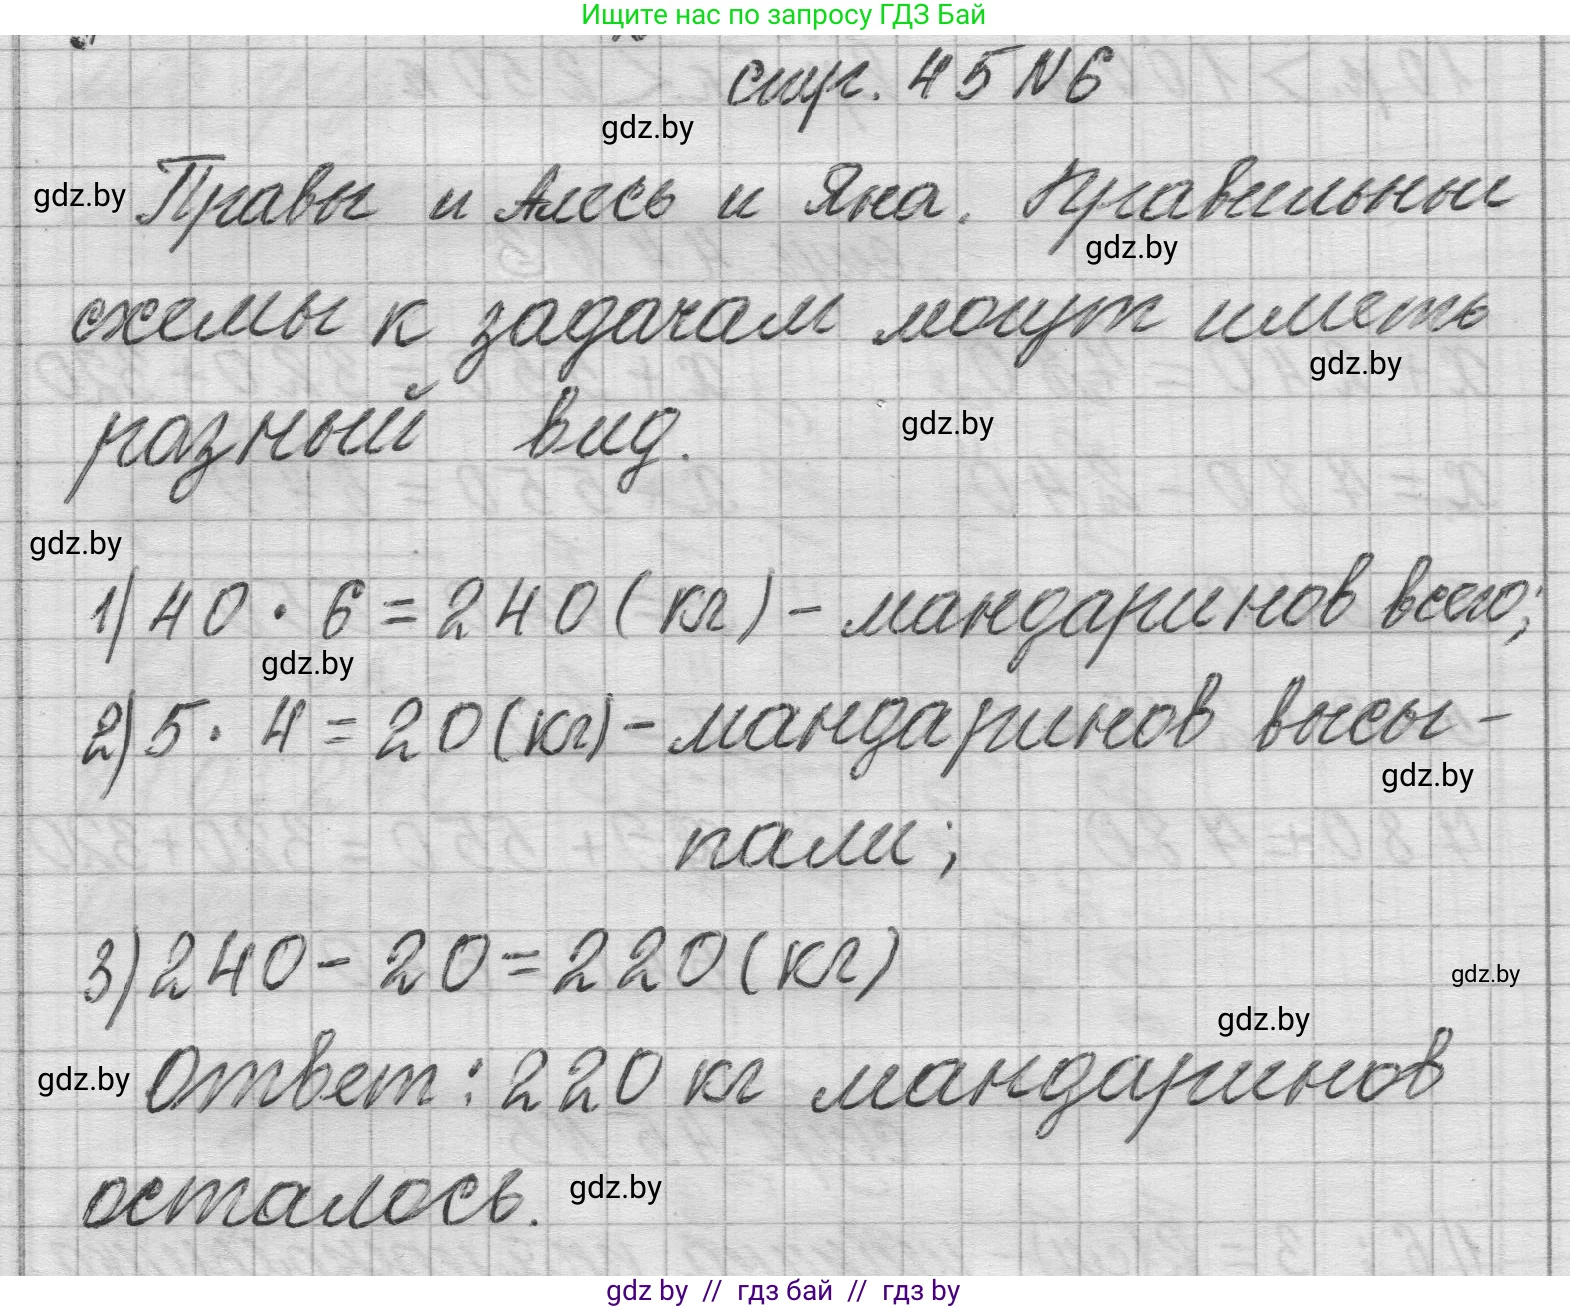 Ищите нас по запросу ГДЗ Бай
стр. 45 N 6
gdz.by
gdz.by Правы и Алесь и Яна. Правильные
gdz.by
схемы к задачам могут иметь
gdz.by
разный вид. gdz.by
gdz.by
1) 40 · 6 = 240 (кг) - мандаринов всего;
gdz.by
2) 5 · 4 = 20 (кг) - мандаринов высы-
gdz.by
пали;
3) 240 - 20 = 220 (кг)
gdz.by
gdz.by
gdz.by Ответ: 220 кг мандаринов
осталось. gdz.by
gdz by // гдз бай // гдз by